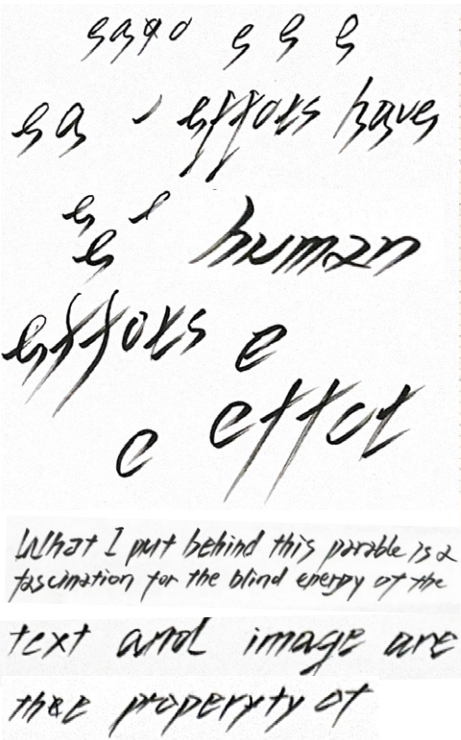 e a a o e e e
e a efforts have
e e
e human
efforts e
e effot
What I put behind this parable is a
fascination for the blind energy of the
text and image are
the properyty of